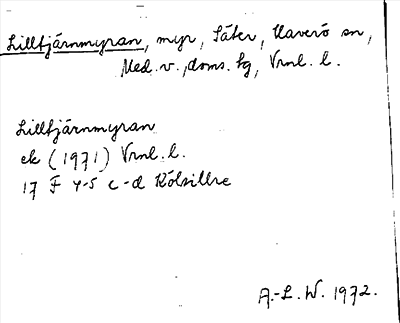 Lilltjärnmyran, myr, Säter, Haverö sn,
Med. v., doms. hg, Vrnl. l.
Lilltjärnmyran
ek (1971) Vrnl. l.
17 F 4-5 c-d Kölsillre
A.-L. W. 1972.